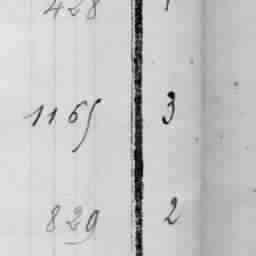 428
1165 3
829 2